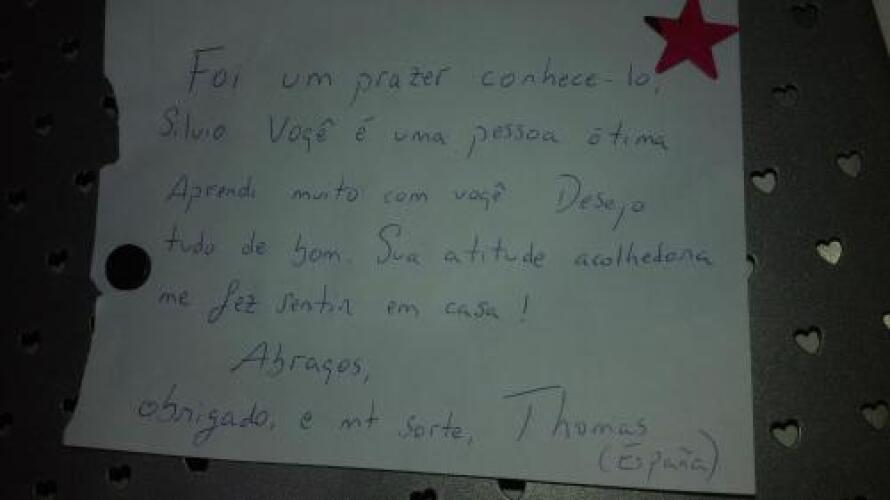 Foi um prazer conhece-lo,
Silvio Voçê é uma pessoa ótima
Aprendi muito com voçê Desejo
tudo de bom. Sua atitude acolhedora
me fez sentir em casa!
Abraços,
obrigado, e mt sorte, Thomas
(España)